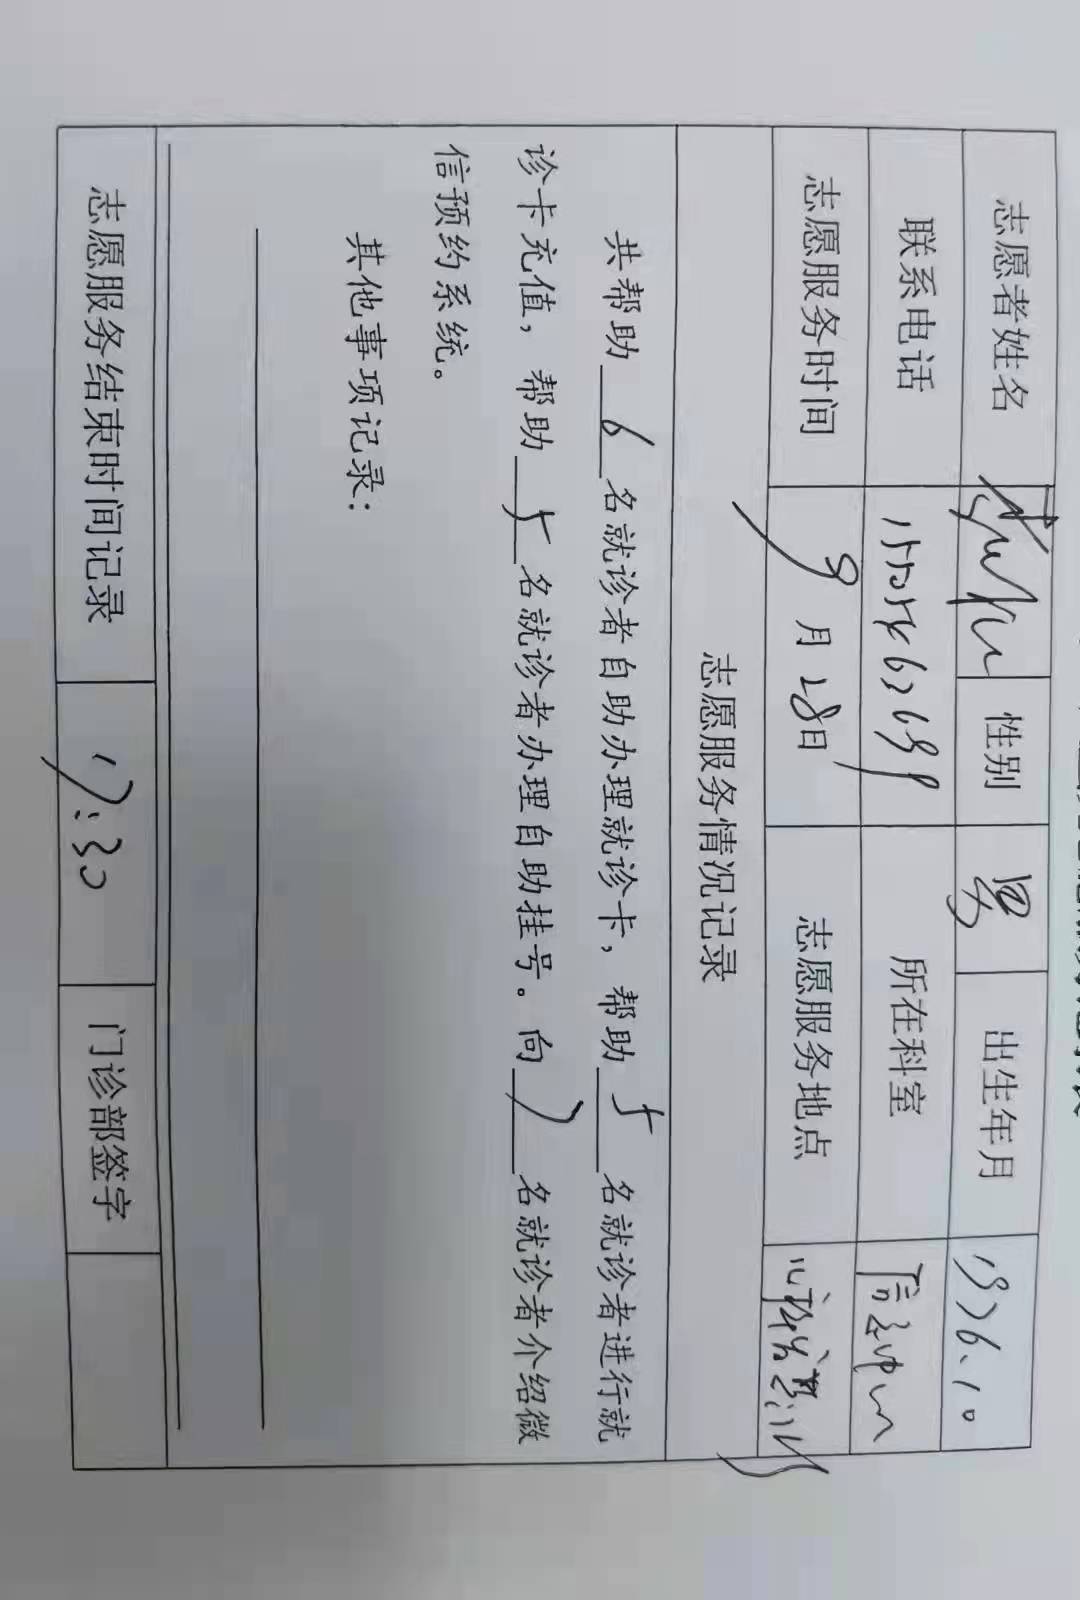 志愿者姓名 性别 男 出生年月 1976.10
联系电话 所在科室 信息中心
志愿服务时间 9月28日 志愿服务地点
志愿服务情况记录
共帮助 6 名就诊者自助办理就诊卡，帮助 5 名就诊者进行就
诊卡充值，帮助 5 名就诊者办理自助挂号。向 7 名就诊者介绍微
信预约系统。
其他事项记录：
志愿服务结束时间记录 17:30 门诊部签字